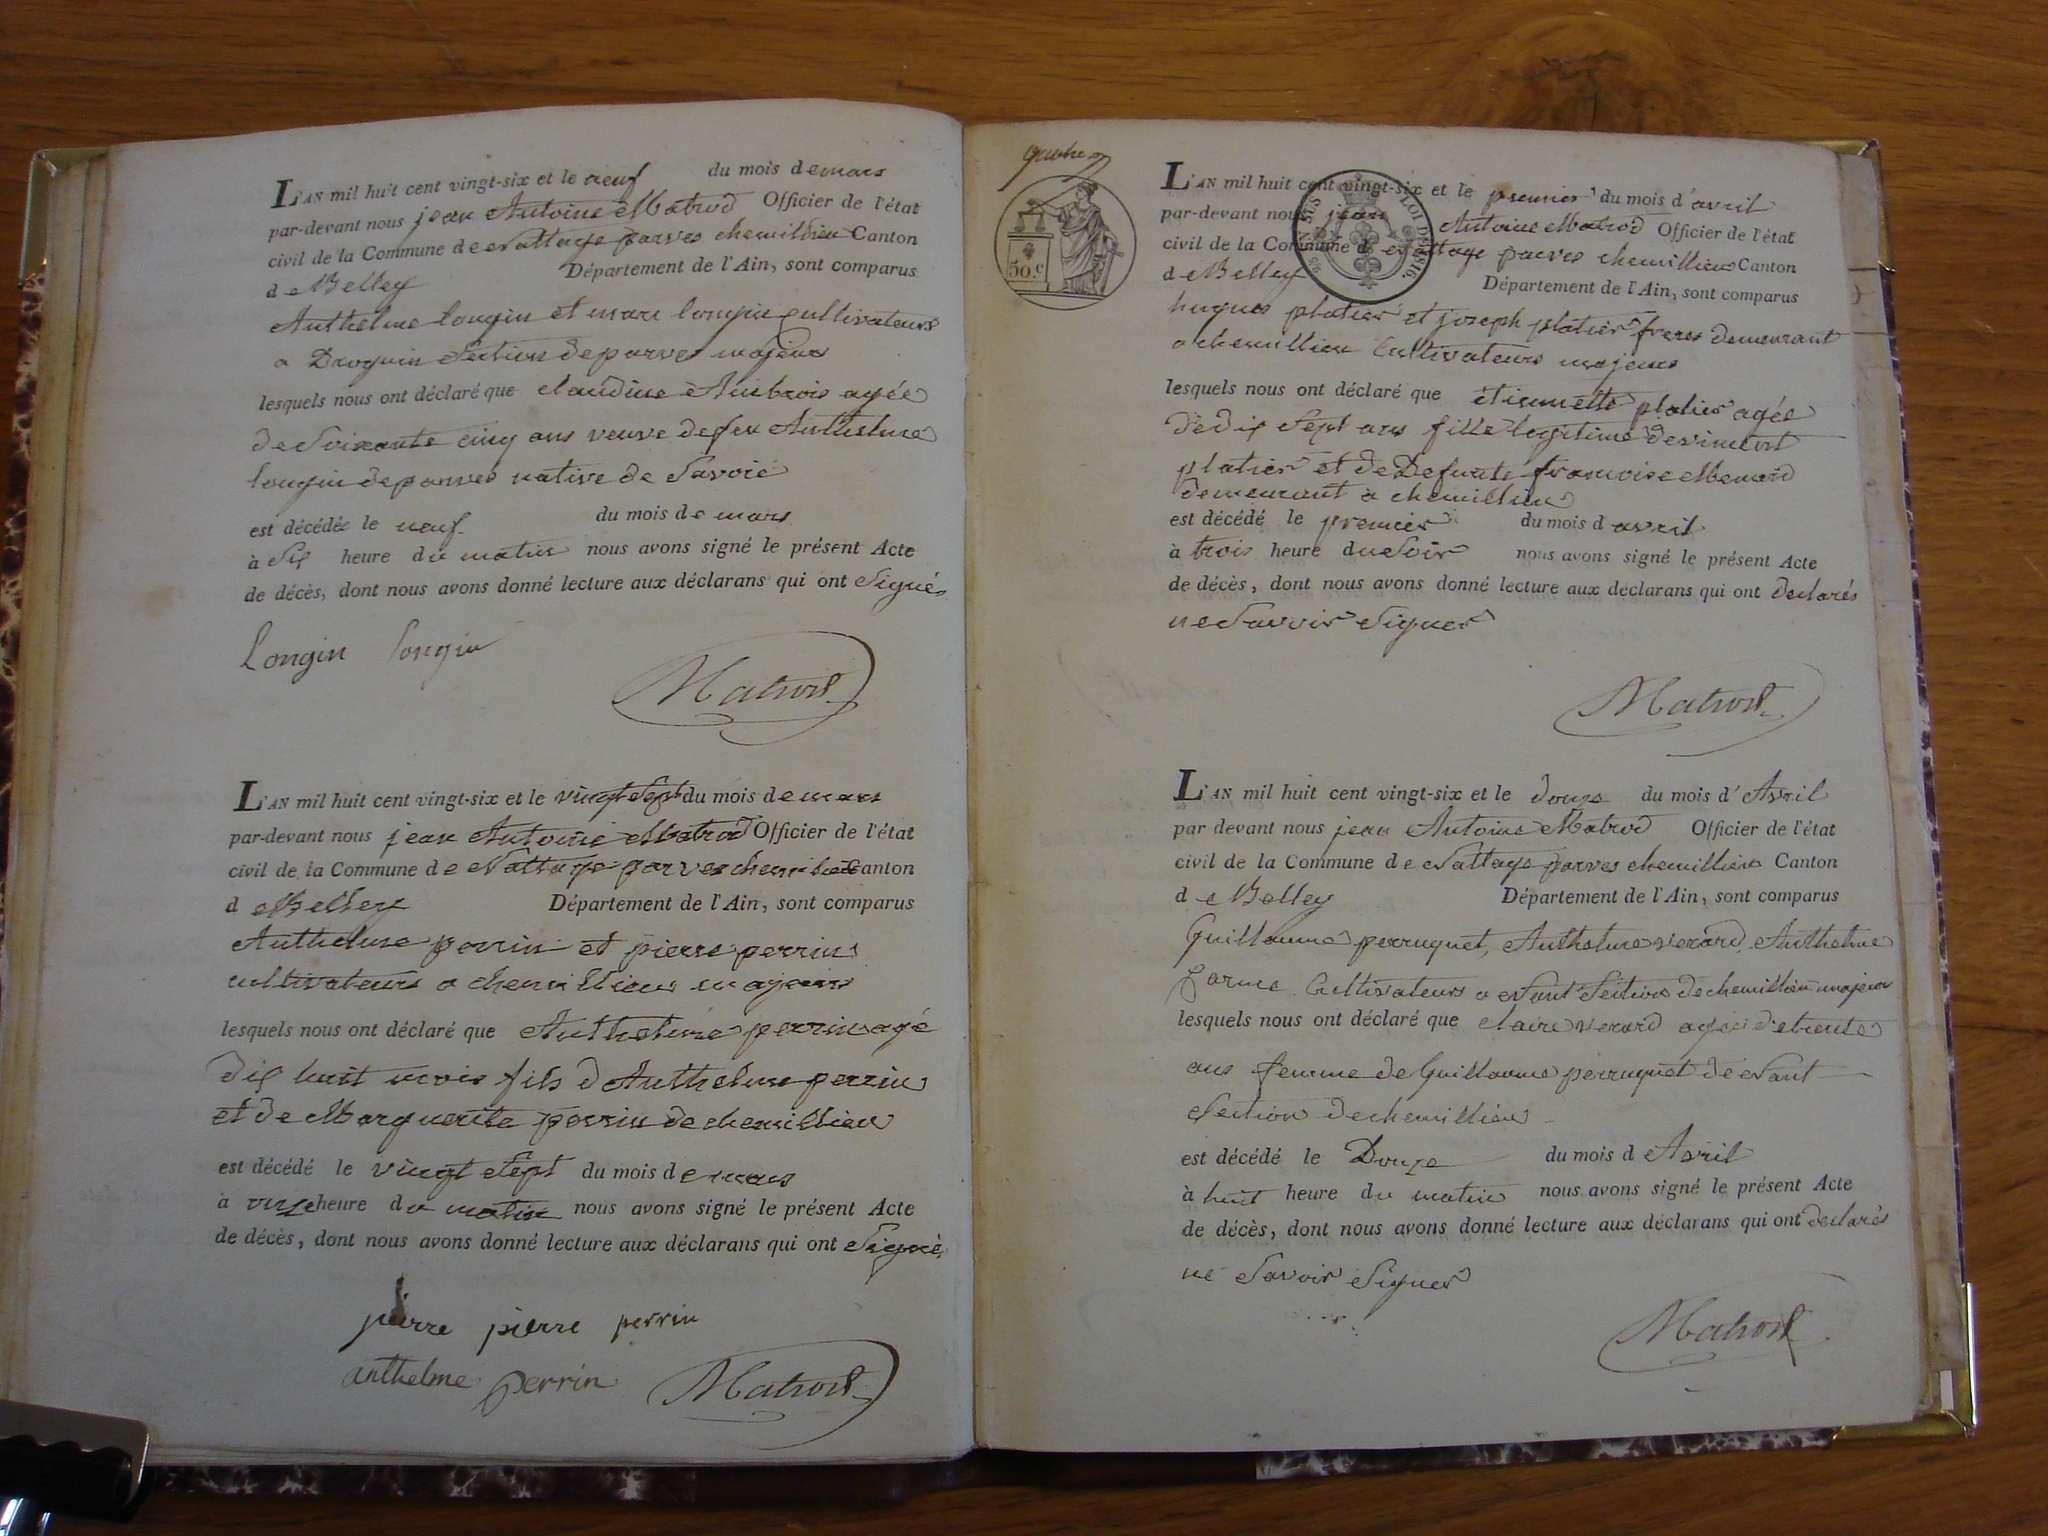 L'AN mil huit cent vingt-six et le neuf du mois de mars
par-devant nous jean Antoine Matrod Officier de l'état
civil de la Commune de Nattage parves chemillieu Canton
de Belley Département de l'Ain, sont comparus
Anthelme longin et marc longin cultivateurs
a Droguin Section de parves majeurs
lesquels nous ont déclaré que claudine Ambrois agée
de Soixante cinq ans veuve de feu Anthelme
longin de parves native de Savoie
est décédée le neuf du mois de mars
à Six heure du matin nous avons signé le présent Acte
de décès, dont nous avons donné lecture aux déclarans qui ont Signés
Longin longin
Matrod
L'AN mil huit cent vingt-six et le vingt Sept du mois de mars
par-devant nous jean Antoine Matrod Officier de l'état
civil de la Commune de Nattage parves chemillieu Canton
de Belley Département de l'Ain, sont comparus
Anthelme perrin et pierre perrin
cultivateurs a chemillieu majeurs
lesquels nous ont déclaré que Anthelme perrin agé
dix huit mois fils d Anthelme perrin
et de Marguerite perrin de chemillieu
est décédé le vingt Sept du mois de mars
à onze heure du matin nous avons signé le présent Acte
de décès, dont nous avons donné lecture aux déclarans qui ont Signés
pierre pierre perrin
anthelme perrin Matrod
50.c
LOI DE 1816.
L'AN mil huit cent vingt-six et le premier du mois d'avril
par-devant nous jean Antoine Matrod Officier de l'état
civil de la Commune de Nattage parves chemillieu Canton
de Belley Département de l'Ain, sont comparus
hugues platier et joseph platier freres demeurant
a chemillieu Cultivateurs majeurs
lesquels nous ont déclaré que etiennette platier agée
de dix Sept ans fille legitime de vincent
platier et de Defunte francoise Menard
demeurant a chemillieu
est décédé le premier du mois d avril
à trois heure du Soir nous avons signé le présent Acte
de décès, dont nous avons donné lecture aux déclarans qui ont declarés
ne Savoir Signer
Matrod
L'AN mil huit cent vingt-six et le douze du mois d' Avril
par devant nous jean Antoine Matrod Officier de l'état
civil de la Commune de Nattage parves chemillieu Canton
de Belley Département de l'Ain, sont comparus
Guillaume perruquet, Anthelme verard, Anthelme
Cultivateurs a Nant Section de chemillieu majeurs
lesquels nous ont déclaré que claire verard agée de trente
ans femme de Guillaume perruquet de Nant
Section de chemillieu
est décédé le Douze du mois d Avril
à huit heure du matin nous avons signé le présent Acte
de décès, dont nous avons donné lecture aux déclarans qui ont declarés
ne Savoir Signer
Matrod